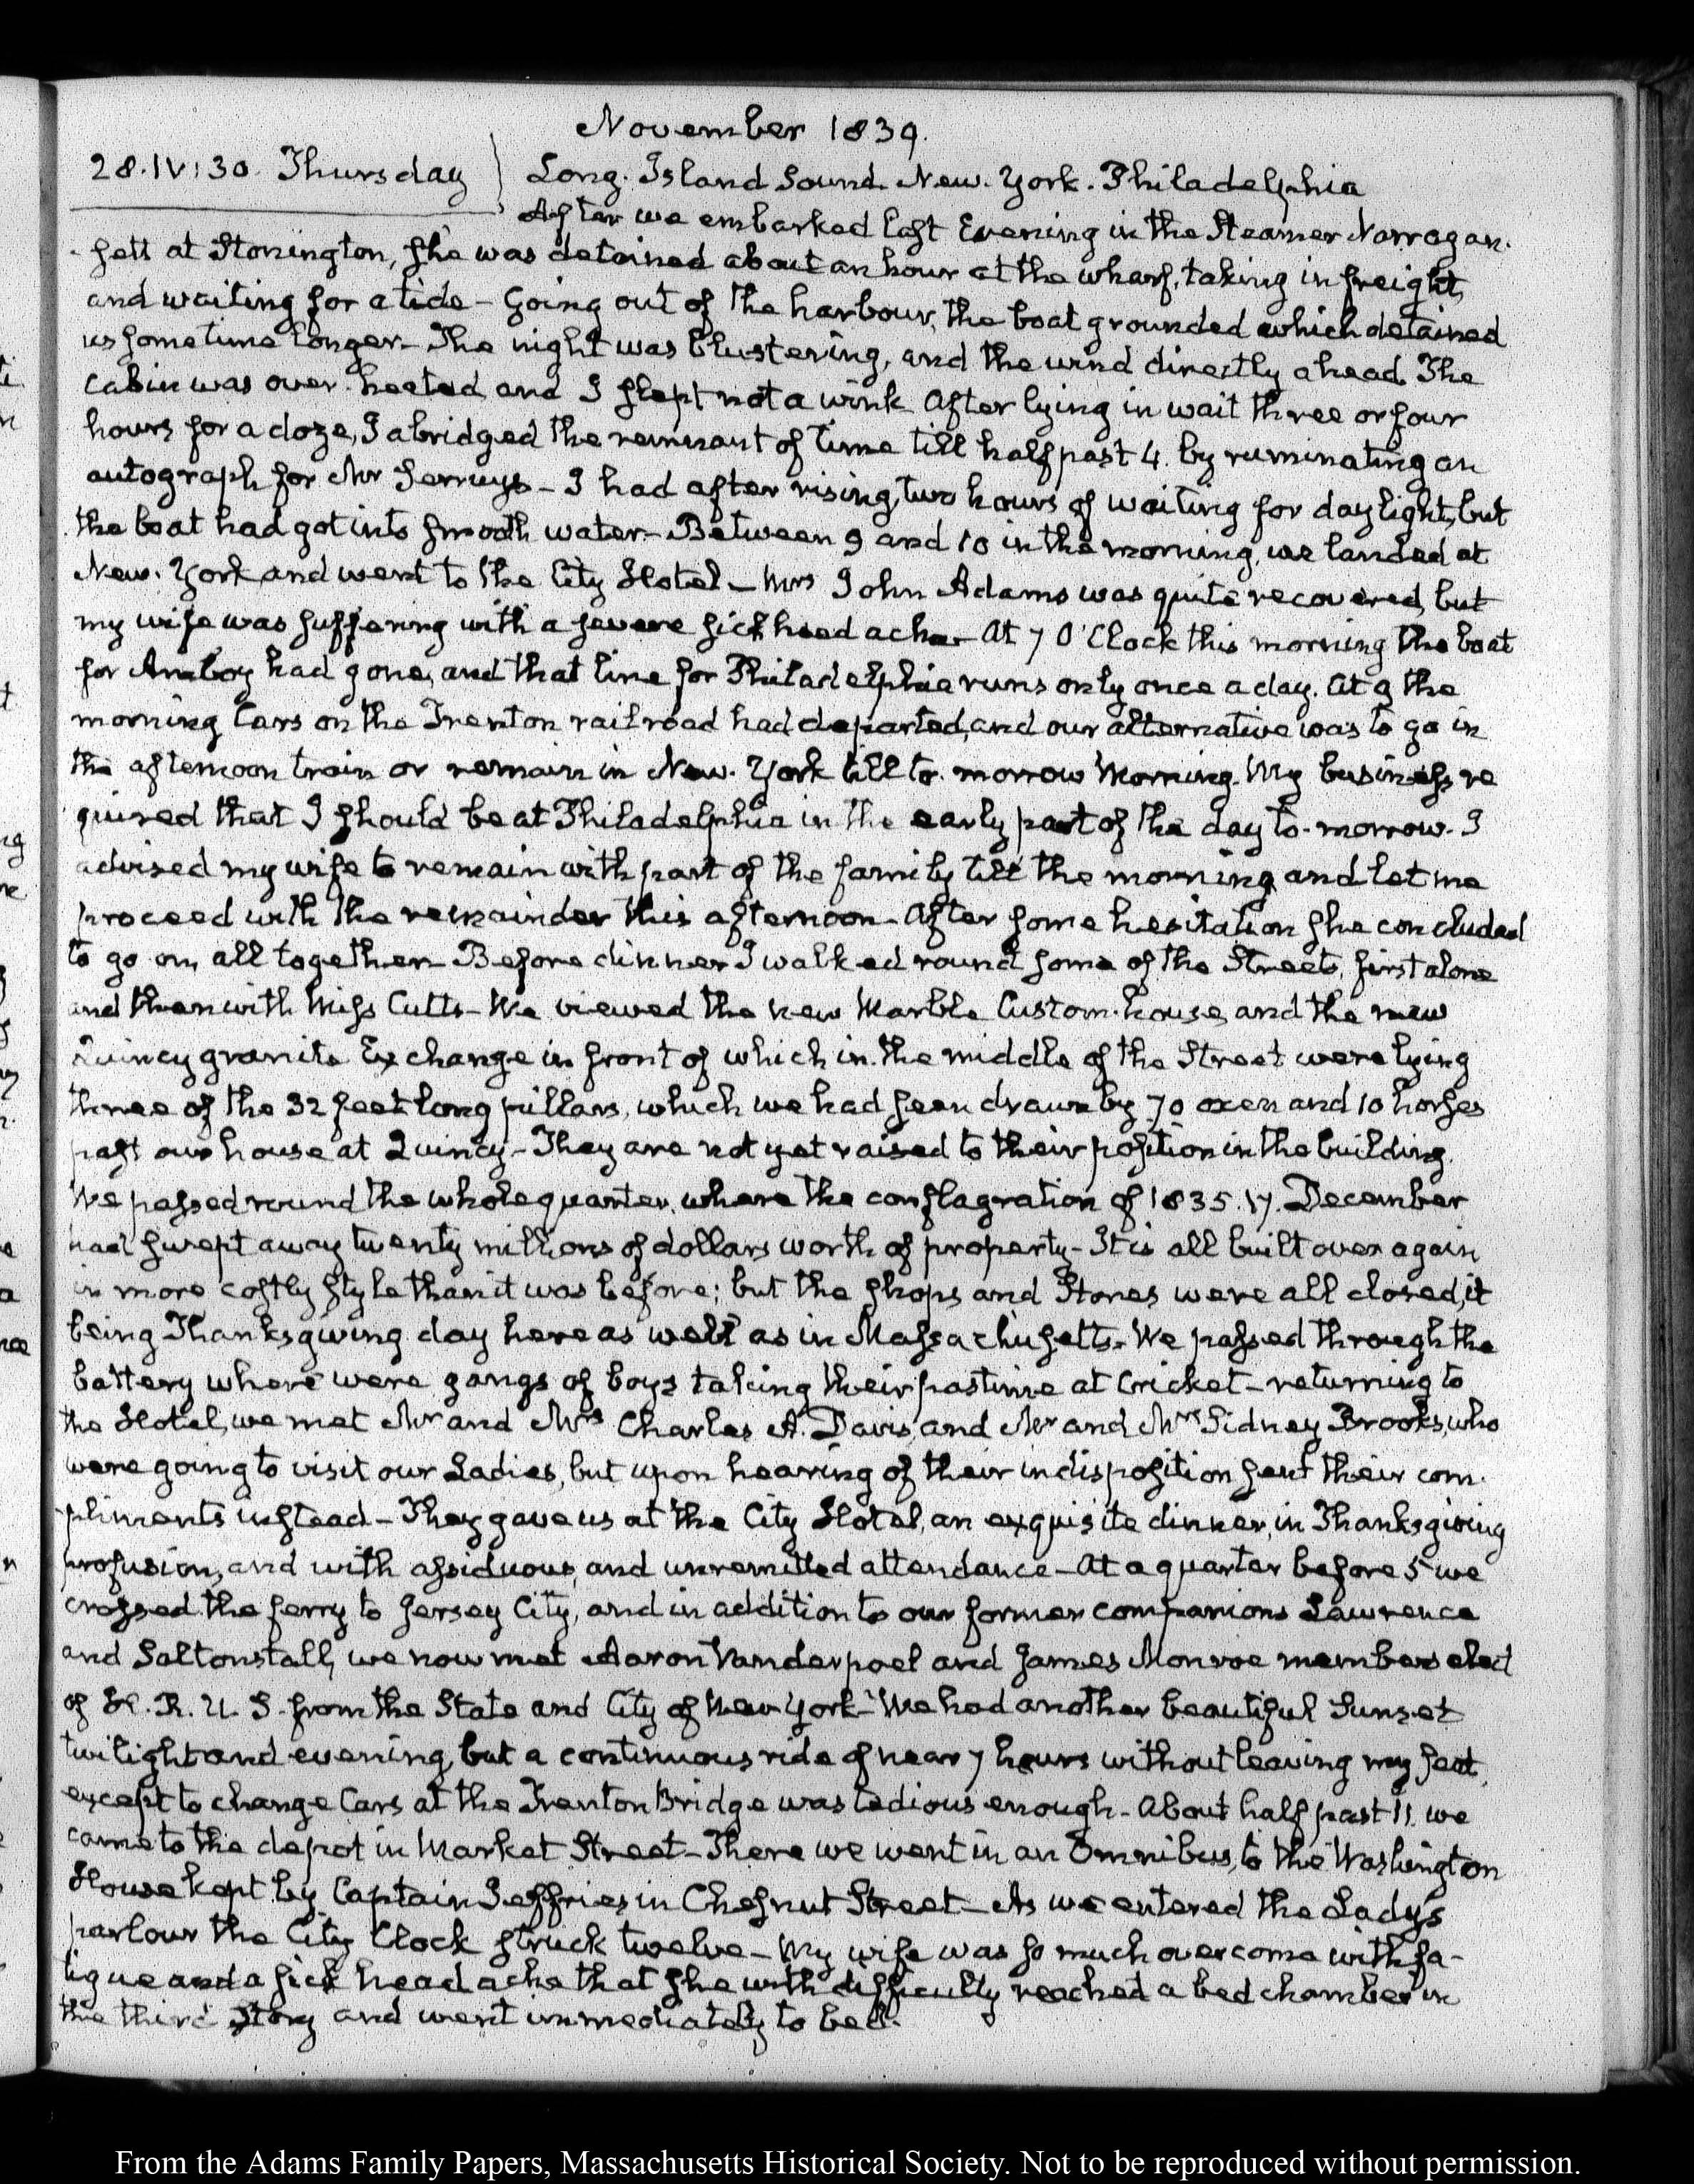 November 1839.
28. IV:30. Thursday
Long. Island Sound. New. York. Philadelphia
After we embarked last Evening in the Steamer Narragan-
sett at Stonington, she was detained about an hour at the wharf, taking in freight,
and waiting for a tide – Going out of the harbour, the boat grounded which detained
us sometime longer – The night was blustering, and the wind directly ahead. The
Cabin was over-heated and I slept not a wink. After lying in wait three or four
hours for a doze, I abridged the remnant of time till half past 4. by ruminating an
autograph for Mr – I had after rising, two hours of waiting for daylight, but
the boat had got into smooth water – Between 9 and 10 in the morning, we landed at
New. York and went to the City Hotel – Mrs John Adams was quite recovered, but
my wife was suffering with a severe sick head ache – At 7 O'Clock this morning the boat
for Amboy had gone, and that line for Philadelphia runs only once a day. At 9 the
morning Cars on the Trenton railroad had departed, and our alternative was to go in
the afternoon train or remain in New. York till to-morrow Morning. My business re
quired that I should be at Philadelphia in the early part of the day to-morrow. I
advised my wife to remain with part of the family till the morning and let me
proceed with the remainder this afternoon – After some hesitation she concluded
to go on, all together – Before dinner I walked round some of the Streets, first alone
and then with Miss Cutts – We viewed the new Marble Custom-house, and the new
Quincy granite Exchange in front of which in the middle of the Street were lying
three of the 32 feet long pillars, which we had seen drawn by 70 oxen and 10 horses
past our house at Quincy – They are not yet raised to their position in the building.
We passed round the whole quarter, where the conflagration of 1835. 17. December
had swept away twenty millions of dollars worth of property – It is all built over again
in more costly style than it was before; but the shops and Stores were all closed, it
being Thanksgiving day here as well as in Massachusetts. We passed through the
battery where were gangs of boys taking their pastime at Cricket – returning to
the Hotel, we met Mr and Mrs Charles A. Davis, and Mr and Mrs Sidney Brooks, who
were going to visit our Ladies, but upon hearing of their indisposition sent their com-
pliments instead – They gave us at the City Hotel, an exquisite dinner, in Thanksgiving
profusion, and with assiduous, and unremitted attendance – At a quarter before 5 we
crossed the ferry to Jersey City, and in addition to our former companions Lawrence
and Saltonstall, we now met Aaron Vanderpoel and James Monroe members elect
of H. R. U. S. from the State and City of New York – We had another beautiful Sunset
twilight and evening, but a continuous ride of near 7 hours without leaving my seat,
except to change Cars at the Trenton Bridge was tedious enough – About half past 11. we
came to the depot in Market Street – There we went in an Omnibus, to the Washington
House kept by Captain Jeffries in Chesnut Street – As we entered the Lady's
parlour the City Clock struck twelve – My wife was so much overcome with fa-
tigue and a sick head ache that she with difficulty reached a bed chamber in
the third Story and went immediately to bed.
From the Adams Family Papers, Massachusetts Historical Society. Not to be reproduced without permission.